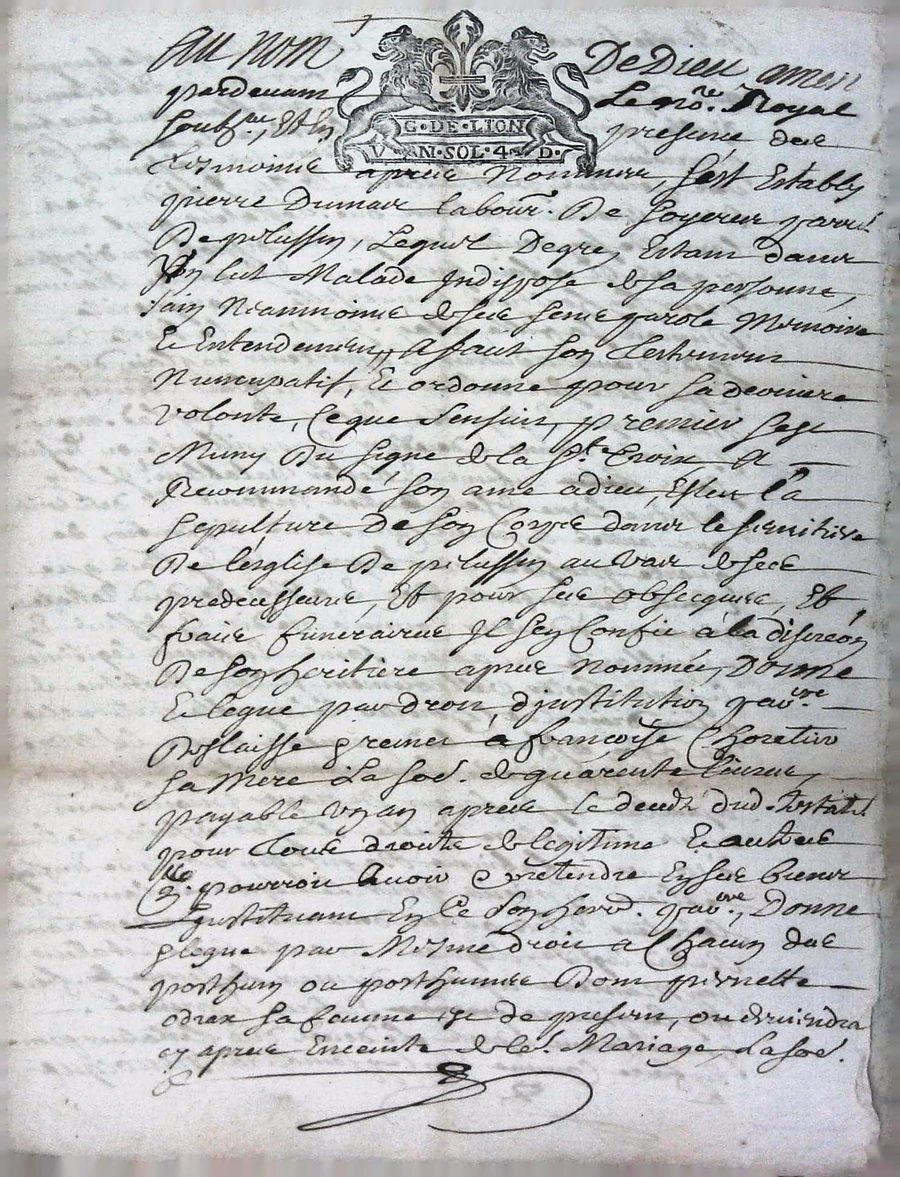 Au nom De Dieu amen
G·DE·LION
V N·SOL·4·D·
pardevant Le no.re Royal
soubs.né, Et En presence des
tesmoins apres nommes, s'est Estably
pierre Dumas labour. De soyeres parr.
De pelussin, Lequel De gre, Estant dans
son lit Malade Indispose de sa personne,
sain Neanmoins de ses sens parole Memoire
Et Entendement, A faict son testement
Nuncupatif, Et ordonne pour sa derniere
volonte, Ce que sensuit, premier sest
Muny Du signe de la Ste Croix A
Recommandé son ame a dieu, Esleu la
sepulture De son Corps dans le simitiere
De l'église De pelussin au vas de ses
predecesseurs, Et pour ses obseques, Et
frais funeraires Il sen Confie à la discreon
De son heritiere apres nommée, Donne
Et legue par droit d'institution
Delaisse premier à françoise
sa Mere La soe. de quarente livres
payable un an apres le deces dud. testat.
pour tous droits de legitime Et autres
q. pourroit Avoir Et pretendre En ses biens
Instituant En Ce son hered. Donne
Et legue par Mesme droit a Chacun des
posthum ou posthumes Dont pernette
odrax sa famme est de present, ou deviendra
cy apres Enceinte de le. Mariage, La soe.